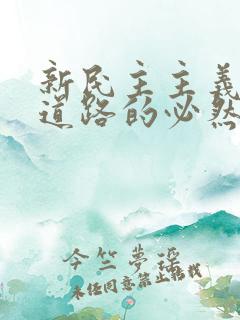 新民主主义
道路的必然
今竺夢瑶
未经同意禁止转载